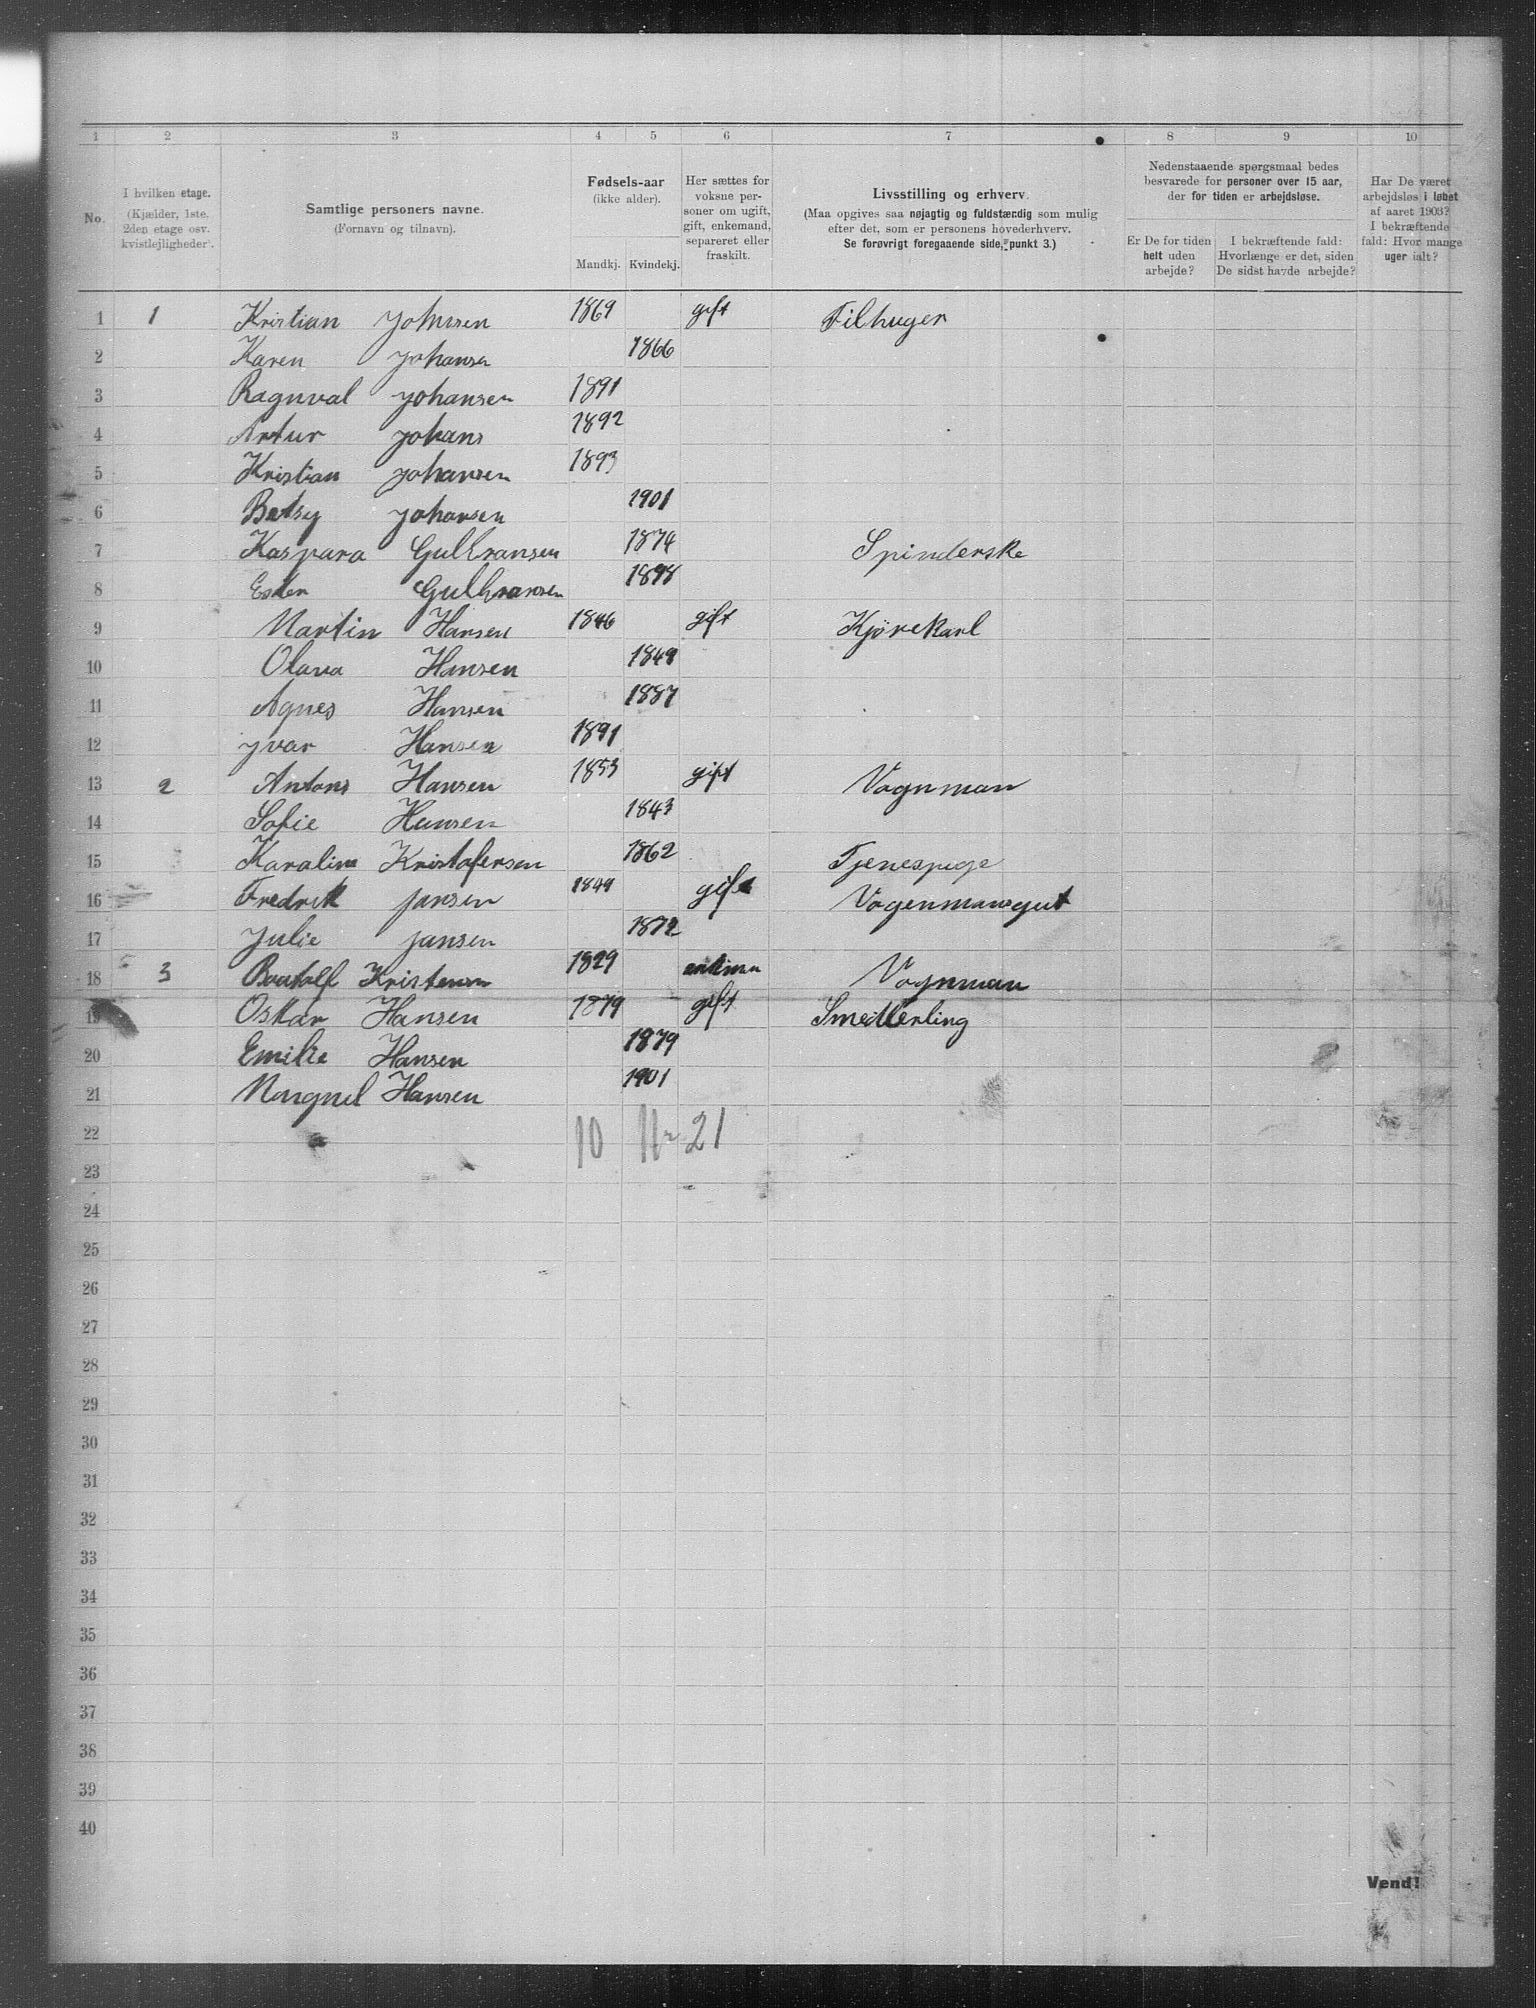 1 2 3 4 5 6 7 8 9 10
No.
I hvilken etage.
(Kjælder, 1ste.
2den etage osv.
kvistlejligheder).
Samtlige personers navne.
(Fornavn og tilnavn).
Fødsels-aar
(ikke alder).
Mandkj. Kvindekj.
Her sættes for
voksne per-
soner om ugift,
gift, enkemand,
separeret eller
fraskilt.
Livsstilling og erhverv.
(Maa opgives saa nøjagtig og fuldstændig som mulig
efter det, som er personens hovederhverv.
Se forøvrigt foregaaende side, punkt 3.)
Nedenstaaende spørgsmaal bedes
besvarede for personer over 15 aar,
der for tiden er arbejdsløse.
Er De for tiden
helt uden
arbejde?
I bekræftende fald:
Hvorlænge er det, siden
De sidst havde arbejde?
Har De været
arbejdsløs i løbet
af aaret 1903?
I bekræftende
fald: Hvor mange
uger ialt?
1 1 Kristian Johnsen 1869 gift Filhuger
2 Karen Johansn 1866
3 Ragnval Johansen 1891
4 Artur Johans 1892
5 Kristian Johansen 1893
6 Betsy Johansen 1901
7 Kaspara Gulbransen 1874 Spinderske
8 Ester Gulbransen 1898
9 Martin Hansen 1846 gift Kjörekarl
10 Olava Hansen 1849
11 Agnes Hansen 1887
12 Yvar Hansen 1891
13 2 Antons Hansen 1853 gift Vognman
14 Sofie Hansen 1843
15 Karaline Kristofersen 1862 Tjenespige
16 Fredrik Jansen 1849 gift Vogenmansgut
17 Julie Jansen 1872
18 3 Kristensn 1829 Vognman
19 Oskar Hansen 1879 gift Smedlerling
20 Emilie Hansen 1879
21 Hansen 1901
22 10 11 21
23
24
25
26
27
28
29
30
31
32
33
34
35
36
37
38
39
40
Vend!